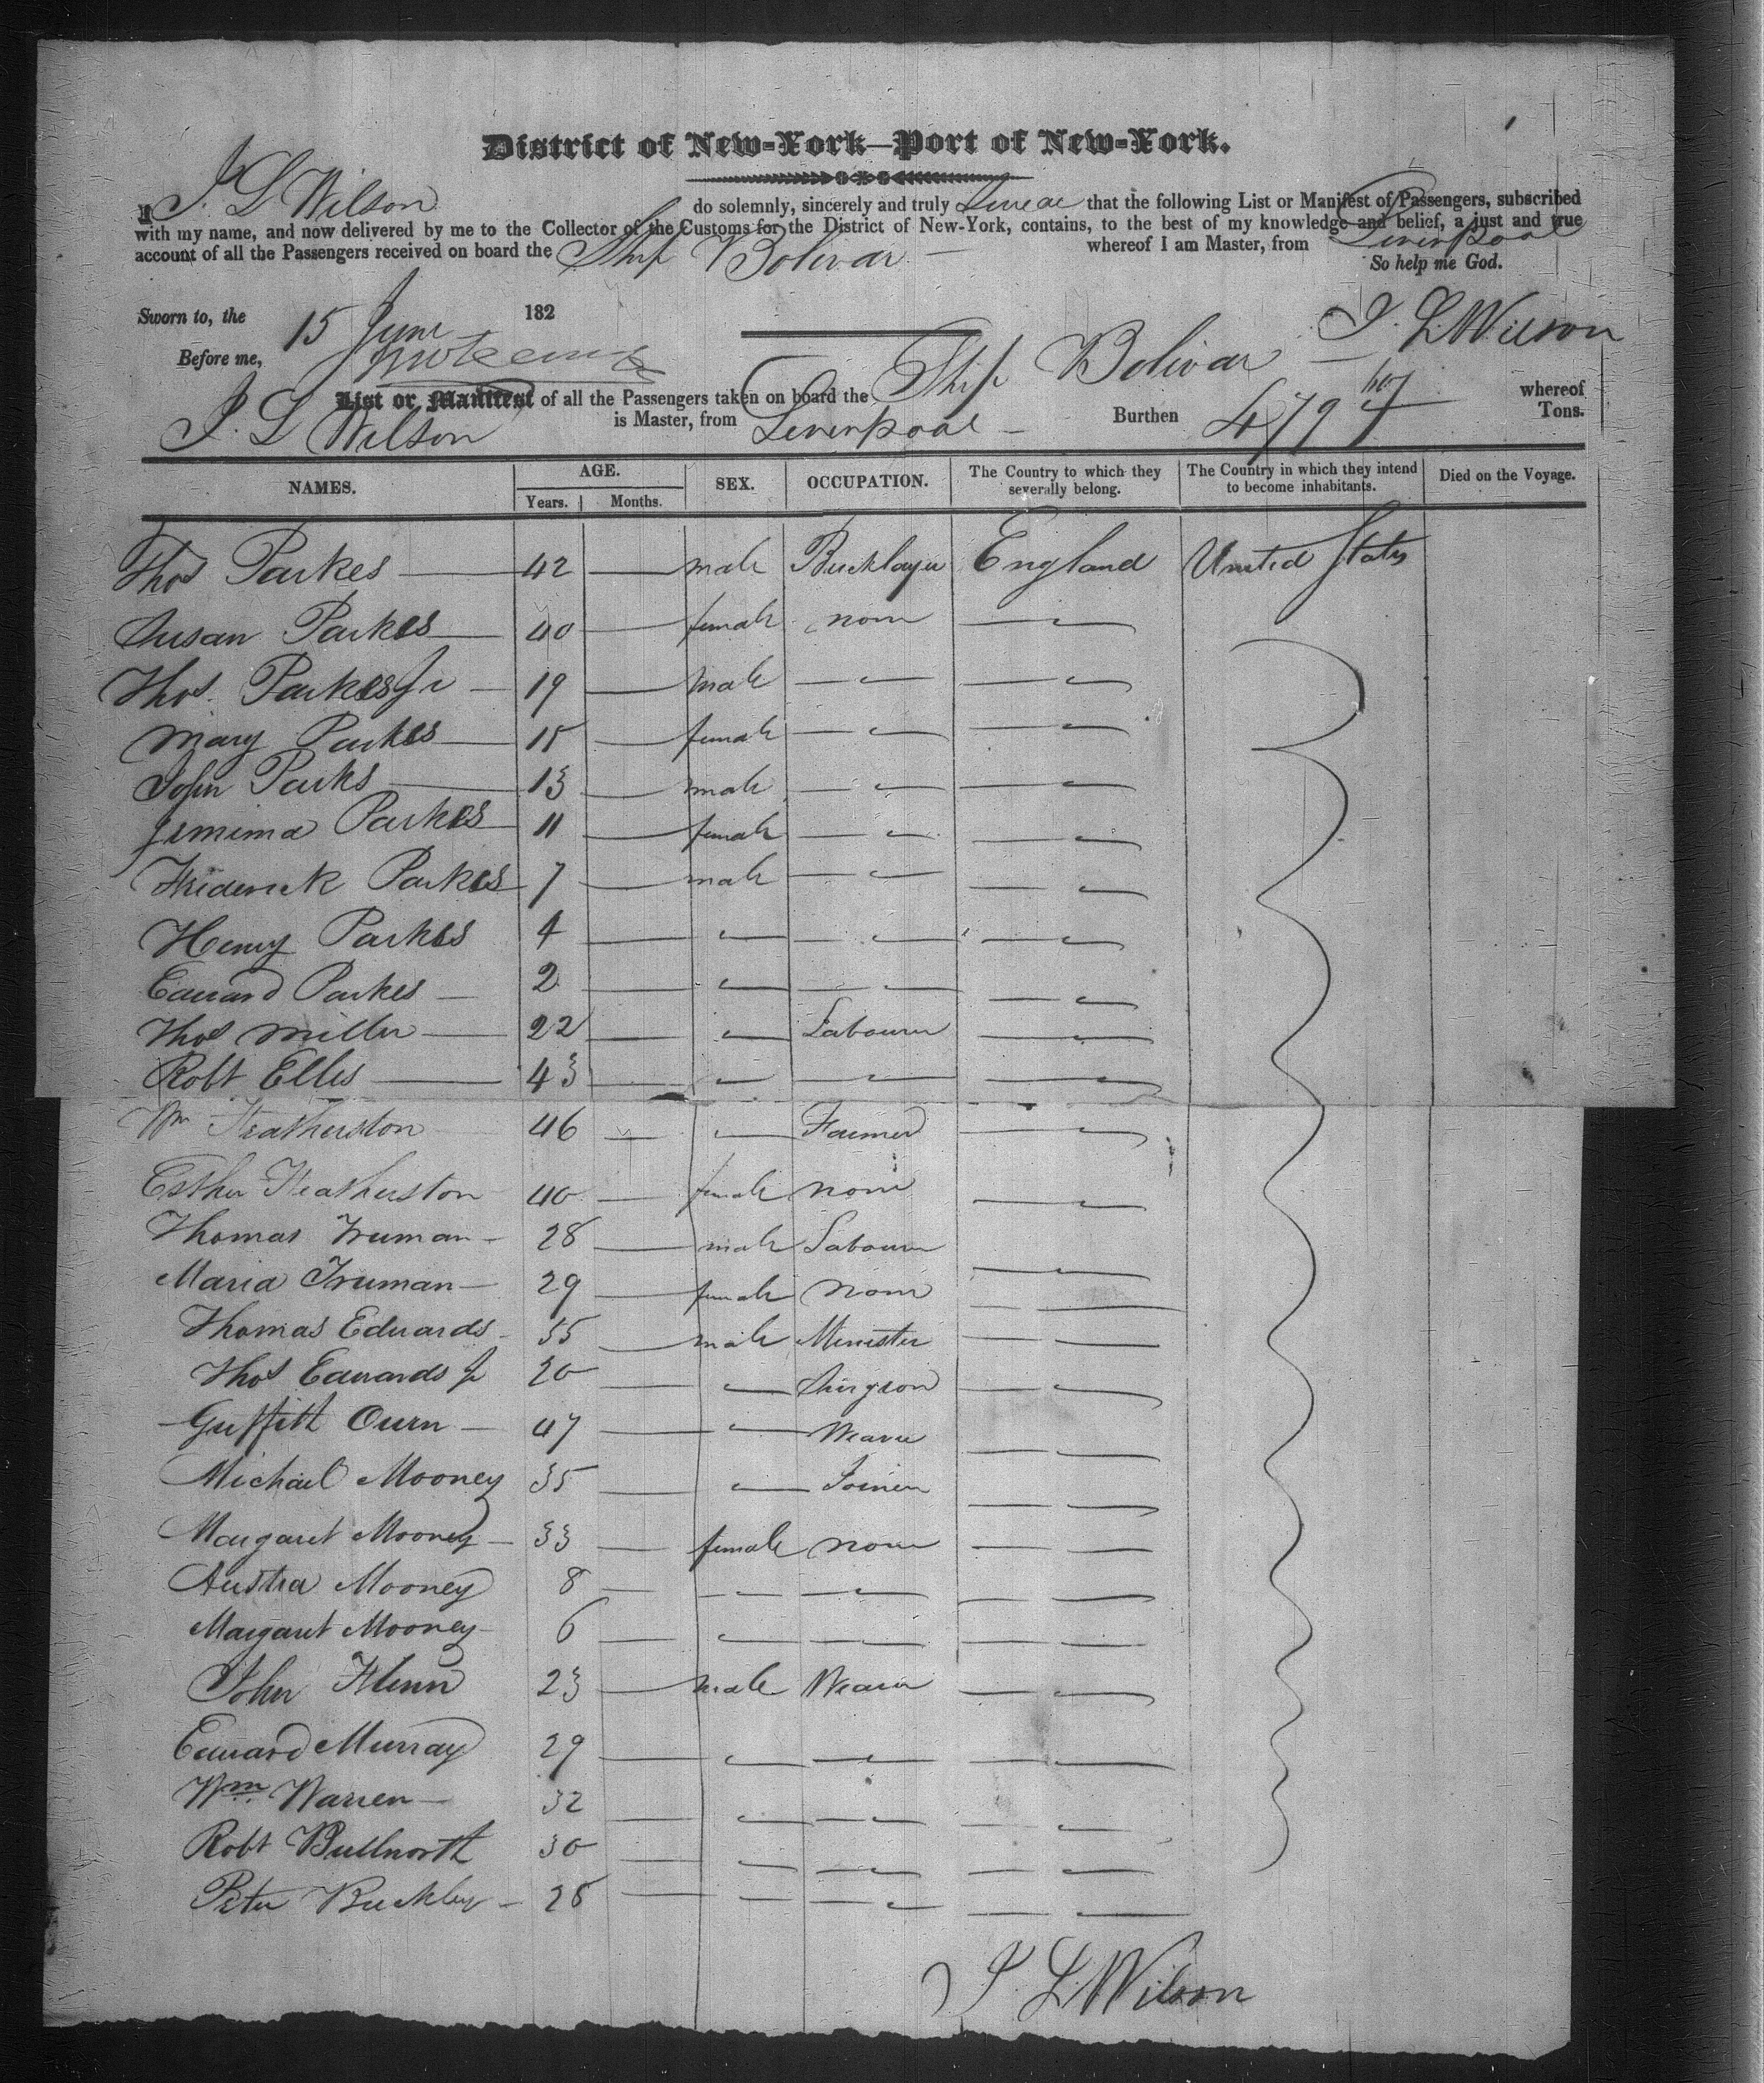 District of New-York—Port of New-York.
I, J. L Wilson do solemnly, sincerely and truly Swear that the following List or Manifest of Passengers, subscribed
with my name, and now delivered by me to the Collector of the Customs for the District of New-York, contains, to the best of my knowledge and belief, a just and true
account of all the Passengers received on board the Ship Bolivar — whereof I am Master, from Liverpool
So help me God.
Sworn to, the 15 June 182
J. L. Wilson
Before me,
List or Manifest of all the Passengers taken on board the Ship Bolivar — whereof
J. L Wilson is Master, from Liverpool — Burthen 479 Tons.
NAMES. AGE. Years. Months. SEX. OCCUPATION. The Country to which they severally belong. The Country in which they intend to become inhabitants. Died on the Voyage.
Thos Parkes — 42 — male Bricklayer England United States
Susan Parkes — 40 — female none — "
Thos. Parkes Jr — 19 — male — " — "
Mary Parkes — 15 — female — " — "
John Parks — 13 — male — " — "
Jemima Parkes 11 — female — " — "
Friderick Parkes 7 — male — " — "
Henry Parkes 4 — " — " — "
Edward Parkes — 2 — " — — — "
Thos Miller — 22 — " Labourer — "
Robt Elles — 43 — " — " — "
Wm Featherston 46 — " Farmer — "
Esther Featherston 40 — female none — "
Thomas Truman — 28 — male Labourer — "
Maria Truman — 29 — female none — —
Thomas Edwards — 55 — male Minister — —
Thos Edwards Jr 20 — " Surgeon — "
Griffith Owen — 47 — " Weaver — "
Michael Mooney 35 — " Joiner — "
Margaret Mooney — 33 — female none — —
Mooney 8 — — " — " — "
Margaret Mooney 6 — " — — — —
John Flinn 23 — male Weaver — "
Edward Murray 29 — " — " — "
Wm. Warren — 32 — " — " — "
Robt Bullworth 30 — " — " — "
Peter Buckley — 28 — — — " — —
J. L. Wilson